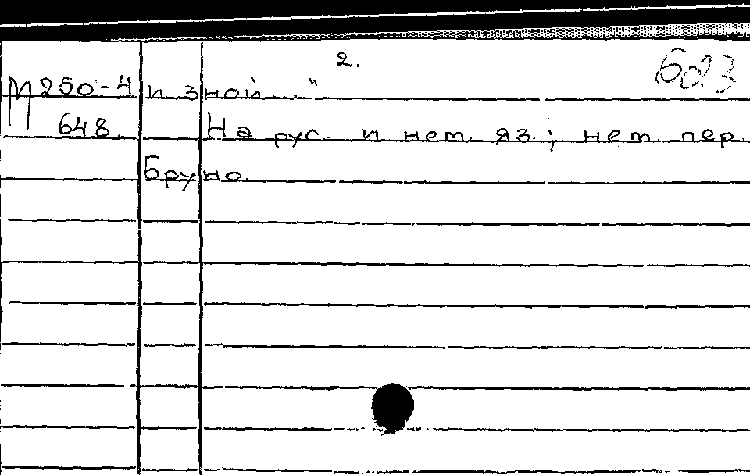 2.
М 250-4 и зной..."
648. На рус. и нем. яз.; нем. пер.
Бруно.